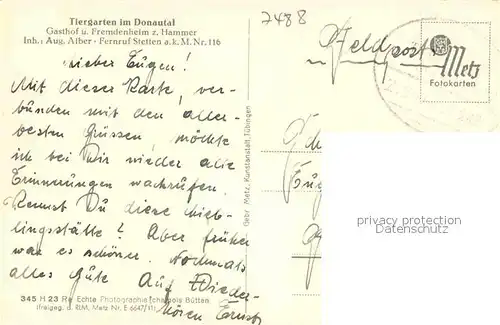 Tiergarten im Donautal
Gasthof u. Fremdenheim z. Hammer
Inh.: Aug. Alber · Fernruf Stetten a.k.M. Nr. 116
7488
Feldpost
Metz
Fotokarten
Lieber Eugen!
Mit dieser Karte, ver-
bunden mit den aller-
besten Grüssen, möchte
ich bei Dir wieder alte
Erinnerungen wachrufen.
Kennst Du diese Lieb-
lingsstätte? Aber früher
war es schöner. Nochmals
alles Gute Auf Wieder-
hören Ernst
Gebr. Metz, Kunstanstalt, Tübingen
privacy protection
www.akpool.de
345 H 23 Re Echte Photographie Bütten
(freigeg. d. RLM, Metz Nr. E 6647/11)